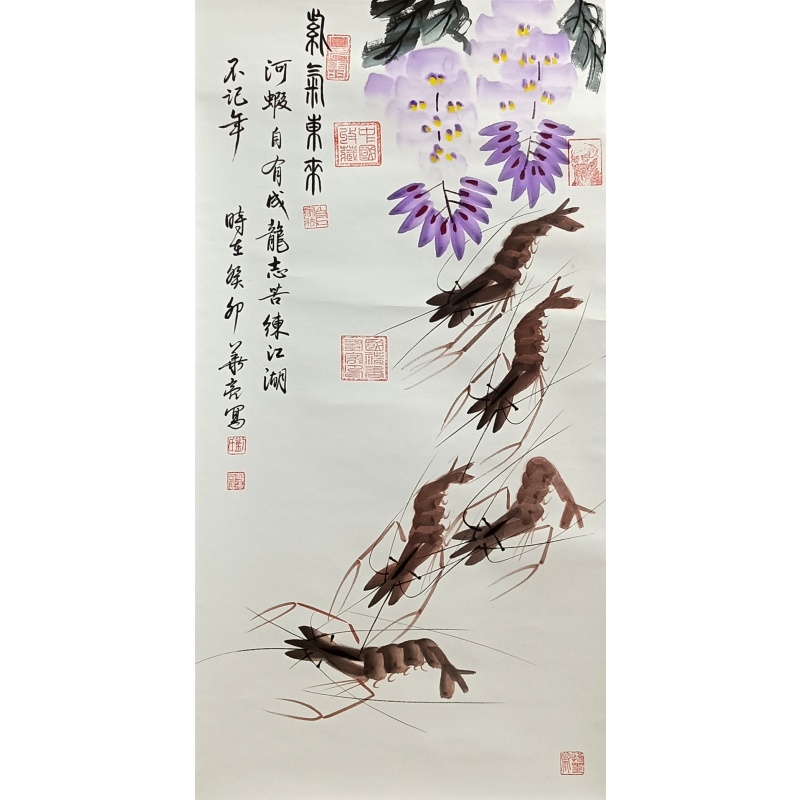 紫氣東来
河蝦自有成龍志苦練江湖
不記年
時在癸卯
華亮寫
中國收藏